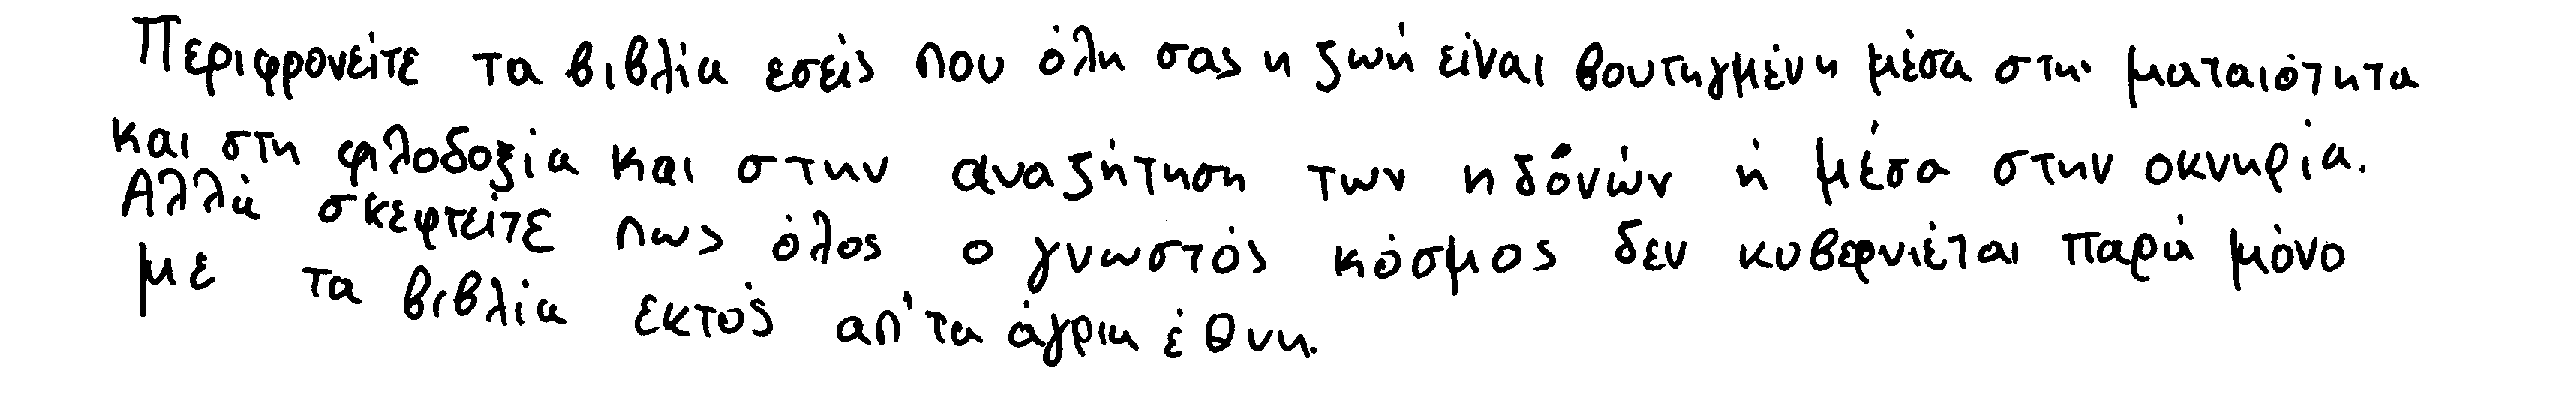 Περιφρονείτε τα βιβλία εσείς που όλη σας η ζωή είναι βουτηγμένη μέσα στη ματαιότητα
και στη φιλοδοξία και στην αναζήτηση των ηδονών ή μέσα στην οκνηρία.
Αλλά σκεφτείτε πως όλος ο γνωστός κόσμος δεν κυβερνιέται παρά μόνο
με τα βιβλία εκτός απ'τα άγρια έθνη.